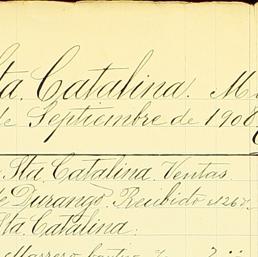 Sta. Catalina. M
de Septiembre de 1908
Sta Catalina. Ventas
de Durango. Recibido
Sta. Catalina.
Marrero